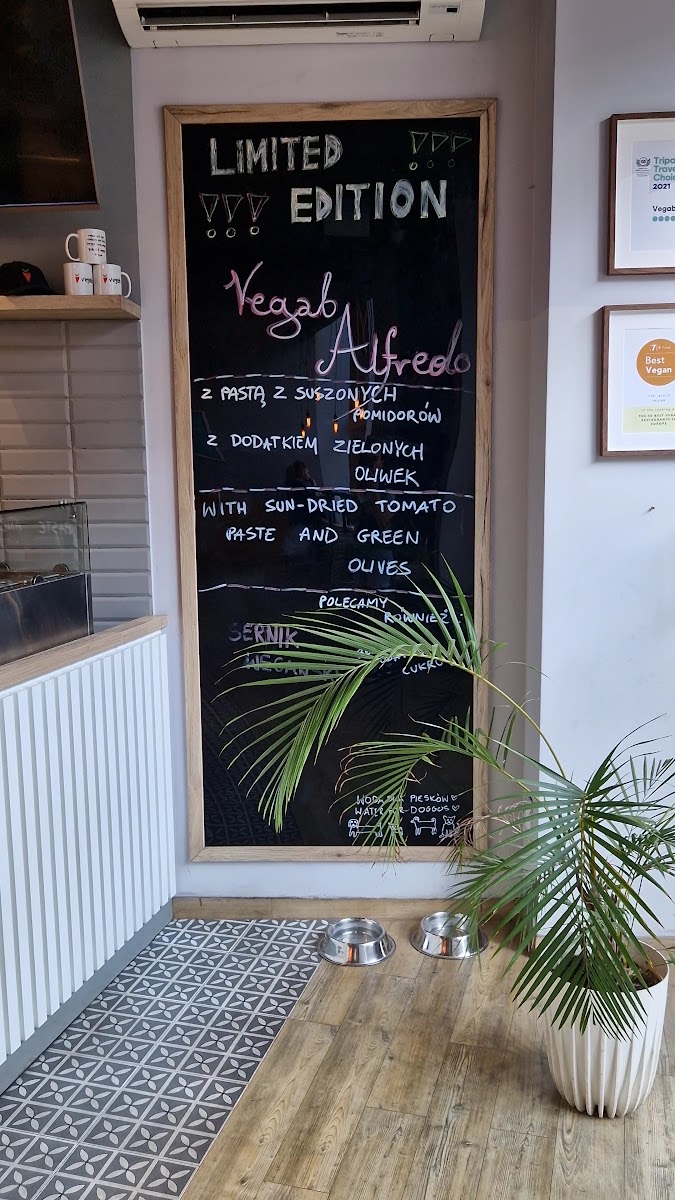 LIMITED
EDITION
Vegab
Alfredo
Z PASTĄ Z SUSZONYCH
POMIDORÓW
Z DODATKIEM ZIELONYCH
OLIWEK
WITH SUN-DRIED TOMATO
PASTE AND GREEN
OLIVES
POLECAMY
RÓWNIEŻ:
SERNIK
CUKRU
PIESKÓW
WATER FOR DOGGOS
2021
Best
Vegan